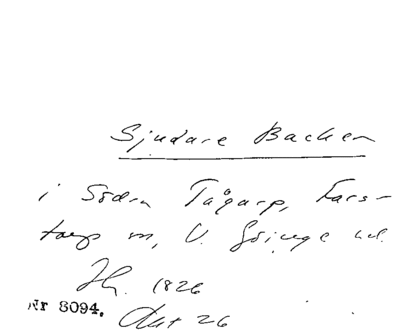 Sjudare Backen
i Södra Tågarp, Fars-
torp sn, V. Göinge hd.
1826
Nr 3094. Akt 26